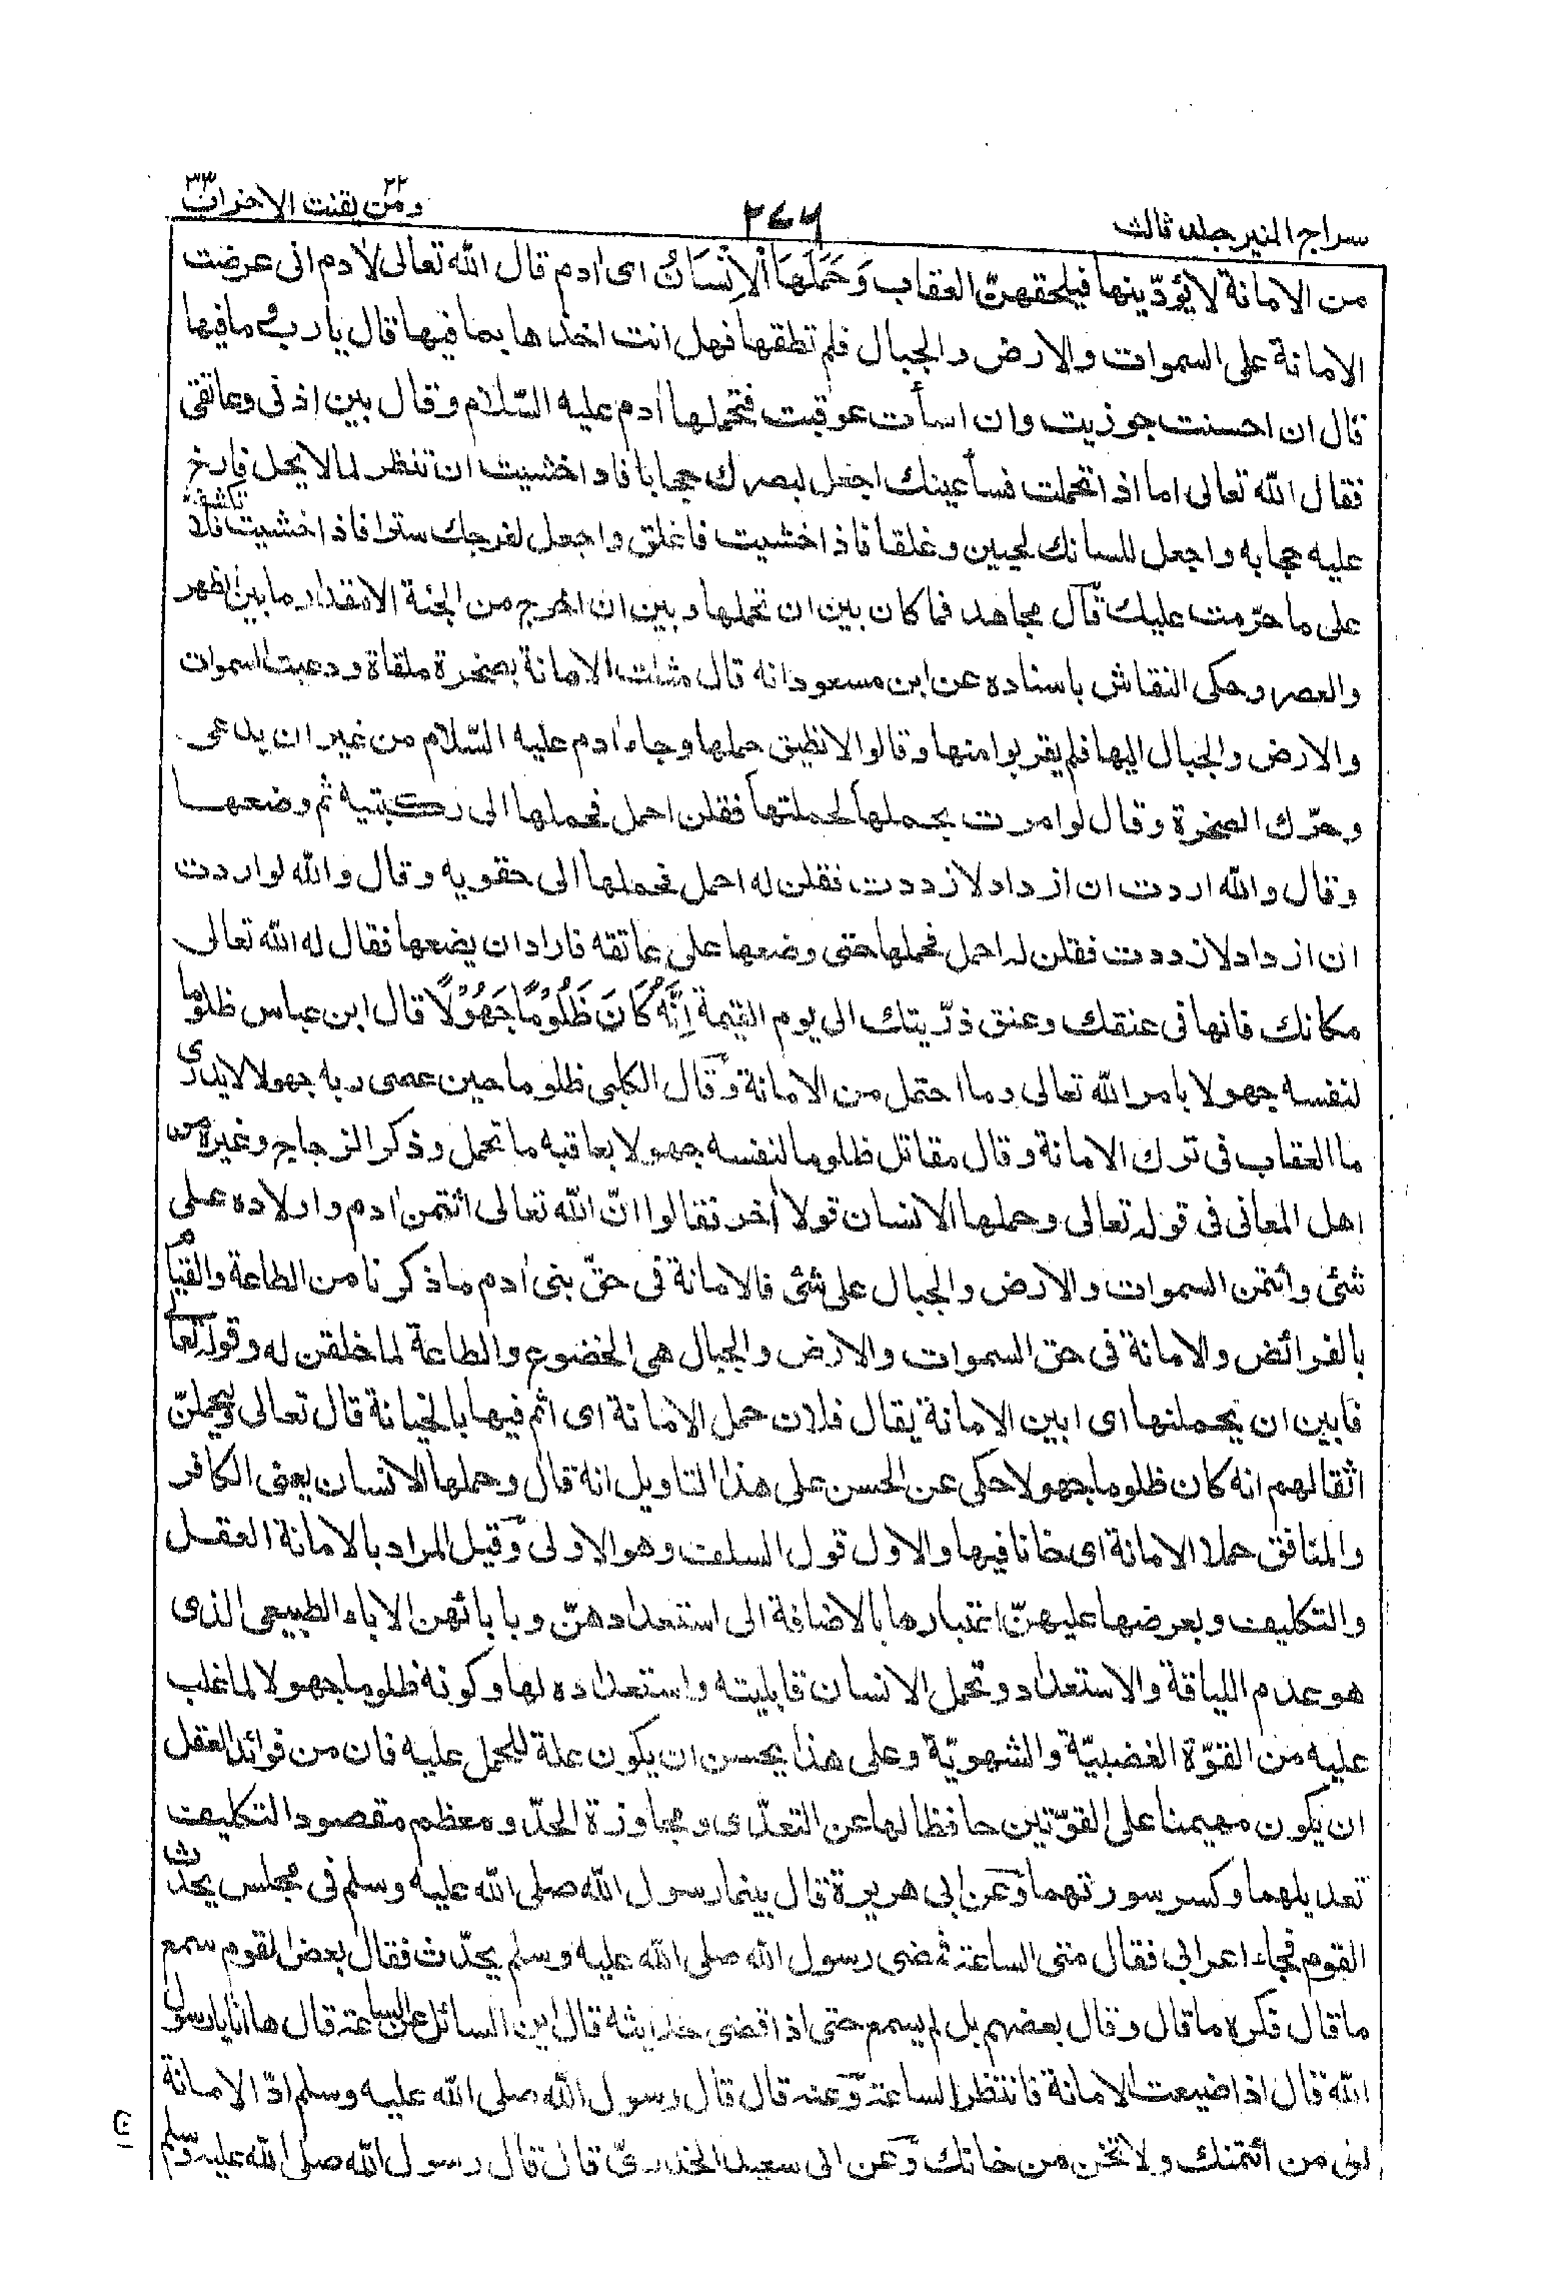 سراج المنير جلد ثالث
٢٤٦
ومن يقنت ٢٢ الاحزاب ٣٣
من الامانة لا يؤدّينها فيلحقهنّ العقاب وَحَمَلَهَا الْاِنْسَانُ اى اٰدم قال الله تعالى لاٰدم انى عرضت
الامانة على السموات والارض والجبال فلم تطقها فهل انت اٰخذها بما فيها قال يا رب وما فيها
قال ان احسنت جوزيت وان اسأت عوقبت فتحملها اٰدم عليه السّلام وقال بين اذنى وعاتقى
فقال الله تعالى اما اذا تحملت فسأعينك اجعل لبصرك حجابا فاذا خشيت ان تنظر لما لا يحل فارخ
عليه حجابه واجعل للسانك لحيين وغلقا فاذا خشيت فاغلق واجعل لفرجك سترا فاذا خشيت فلا تكشفه
على ما حرّمت عليك قال مجاهد فما كان بين ان تحملها وبين ان اخرج من الجنة الا مقدار ما بين الظهر
والعصر وحكى النقاش باسناده عن ابن مسعود انه قال مثلت الامانة بصخرة ملقاة ودعيت السموات
والارض والجبال اليها فلم يقربوا منها وقالوا لا نطيق حملها وجاء اٰدم عليه السّلام من غير ان يدعى
وحرّك الصخرة وقال لو امرت بحملها لحملتها فقلن احمل فحملها الى ركبتيه ثم وضعها
وقال والله اردت ان ازداد لازددت فقلن له احمل فحملها الى حقويه وقال والله لو اردت
ان ازداد لازددت فقلن له احمل فحملها حتى وضعها على عاتقه فاراد ان يضعها فقال له الله تعالى
مكانك فانها فى عنقك وعنق ذرّيتك الى يوم القيمة اِنَّهُ كَانَ ظَلُوْمًا جَهُوْلًا قال ابن عباس ظلوما
لنفسه جهولا بامر الله تعالى وما احتمل من الامانة وقال الكلبى ظلوما حين عصى ربه جهولا لا يدرى
ما العقاب فى ترك الامانة وقال مقاتل ظلوما لنفسه جهولا بعاقبه ما تحمل وذكر الزجاج وغيره من
اهل المعانى فى قوله تعالى وحملها الانسان قولا اٰخر فقالوا انّ الله تعالى ائتمن اٰدم واولاده على
شئ وائتمن السموات والارض والجبال على شئ فالامانة فى حقّ بنى اٰدم ما ذكرنا من الطاعة والقيام
بالفرائض والامانة فى حق السموات والارض والجبال هى الخضوع والطاعة لما خلقن له وقوله تعالى
فابين ان يحملنها اى ابين الامانة يقال فلان حمل الامانة اى اثم فيها بالخيانة قال تعالى وليحملنّ
اثقالهم انه كان ظلوما جهولا حكى عن الحسن على هذا التاويل انه قال وحملها الانسان يعنى الكافر
والمنافق حملا الامانة اى خانا فيها والاول قول السلف وهو الاولى وقيل المراد بالامانة العقل
والتكليف وبعرضها عليهنّ اعتبارها بالاضافة الى استعدادهنّ وبابائهن الاباء الطبيعى الذى
هو عدم اللياقة والاستعداد وتحمل الانسان قابليته واستعداده لها وكونه ظلوما جهولا لما غلب
عليه من القوّة الغضبيّة والشهويّة وعلى هذا يحسن ان يكون علة للحمل عليه فان من فوائد العقل
ان يكون مهيمنا على القوّتين حافظا لها عن التعدّى ومجاوزة الحدّ ومعظم مقصود التكليف
تعديلهما وكسر سورتهما وعن ابى هريرة قال بينما رسول الله صلى الله عليه وسلم فى مجلس يحدّث
القوم فجاء اعرابى فقال متى الساعة فمضى رسول الله صلى الله عليه وسلم يحدّث فقال بعض القوم سمع
ما قال فكره ما قال وقال بعضهم بل لم يسمع حتى اذا قضى حديثه قال اين السائل عن الساعة قال ها انا يا رسول
الله قال اذا ضيعت الامانة فانتظر الساعة وعنه قال قال رسول الله صلى الله عليه وسلم ادّ الامانة
الى من ائتمنك ولا تخن من خانك وعن ابى سعيد الخدرىّ قال قال رسول الله صلى الله عليه وسلم